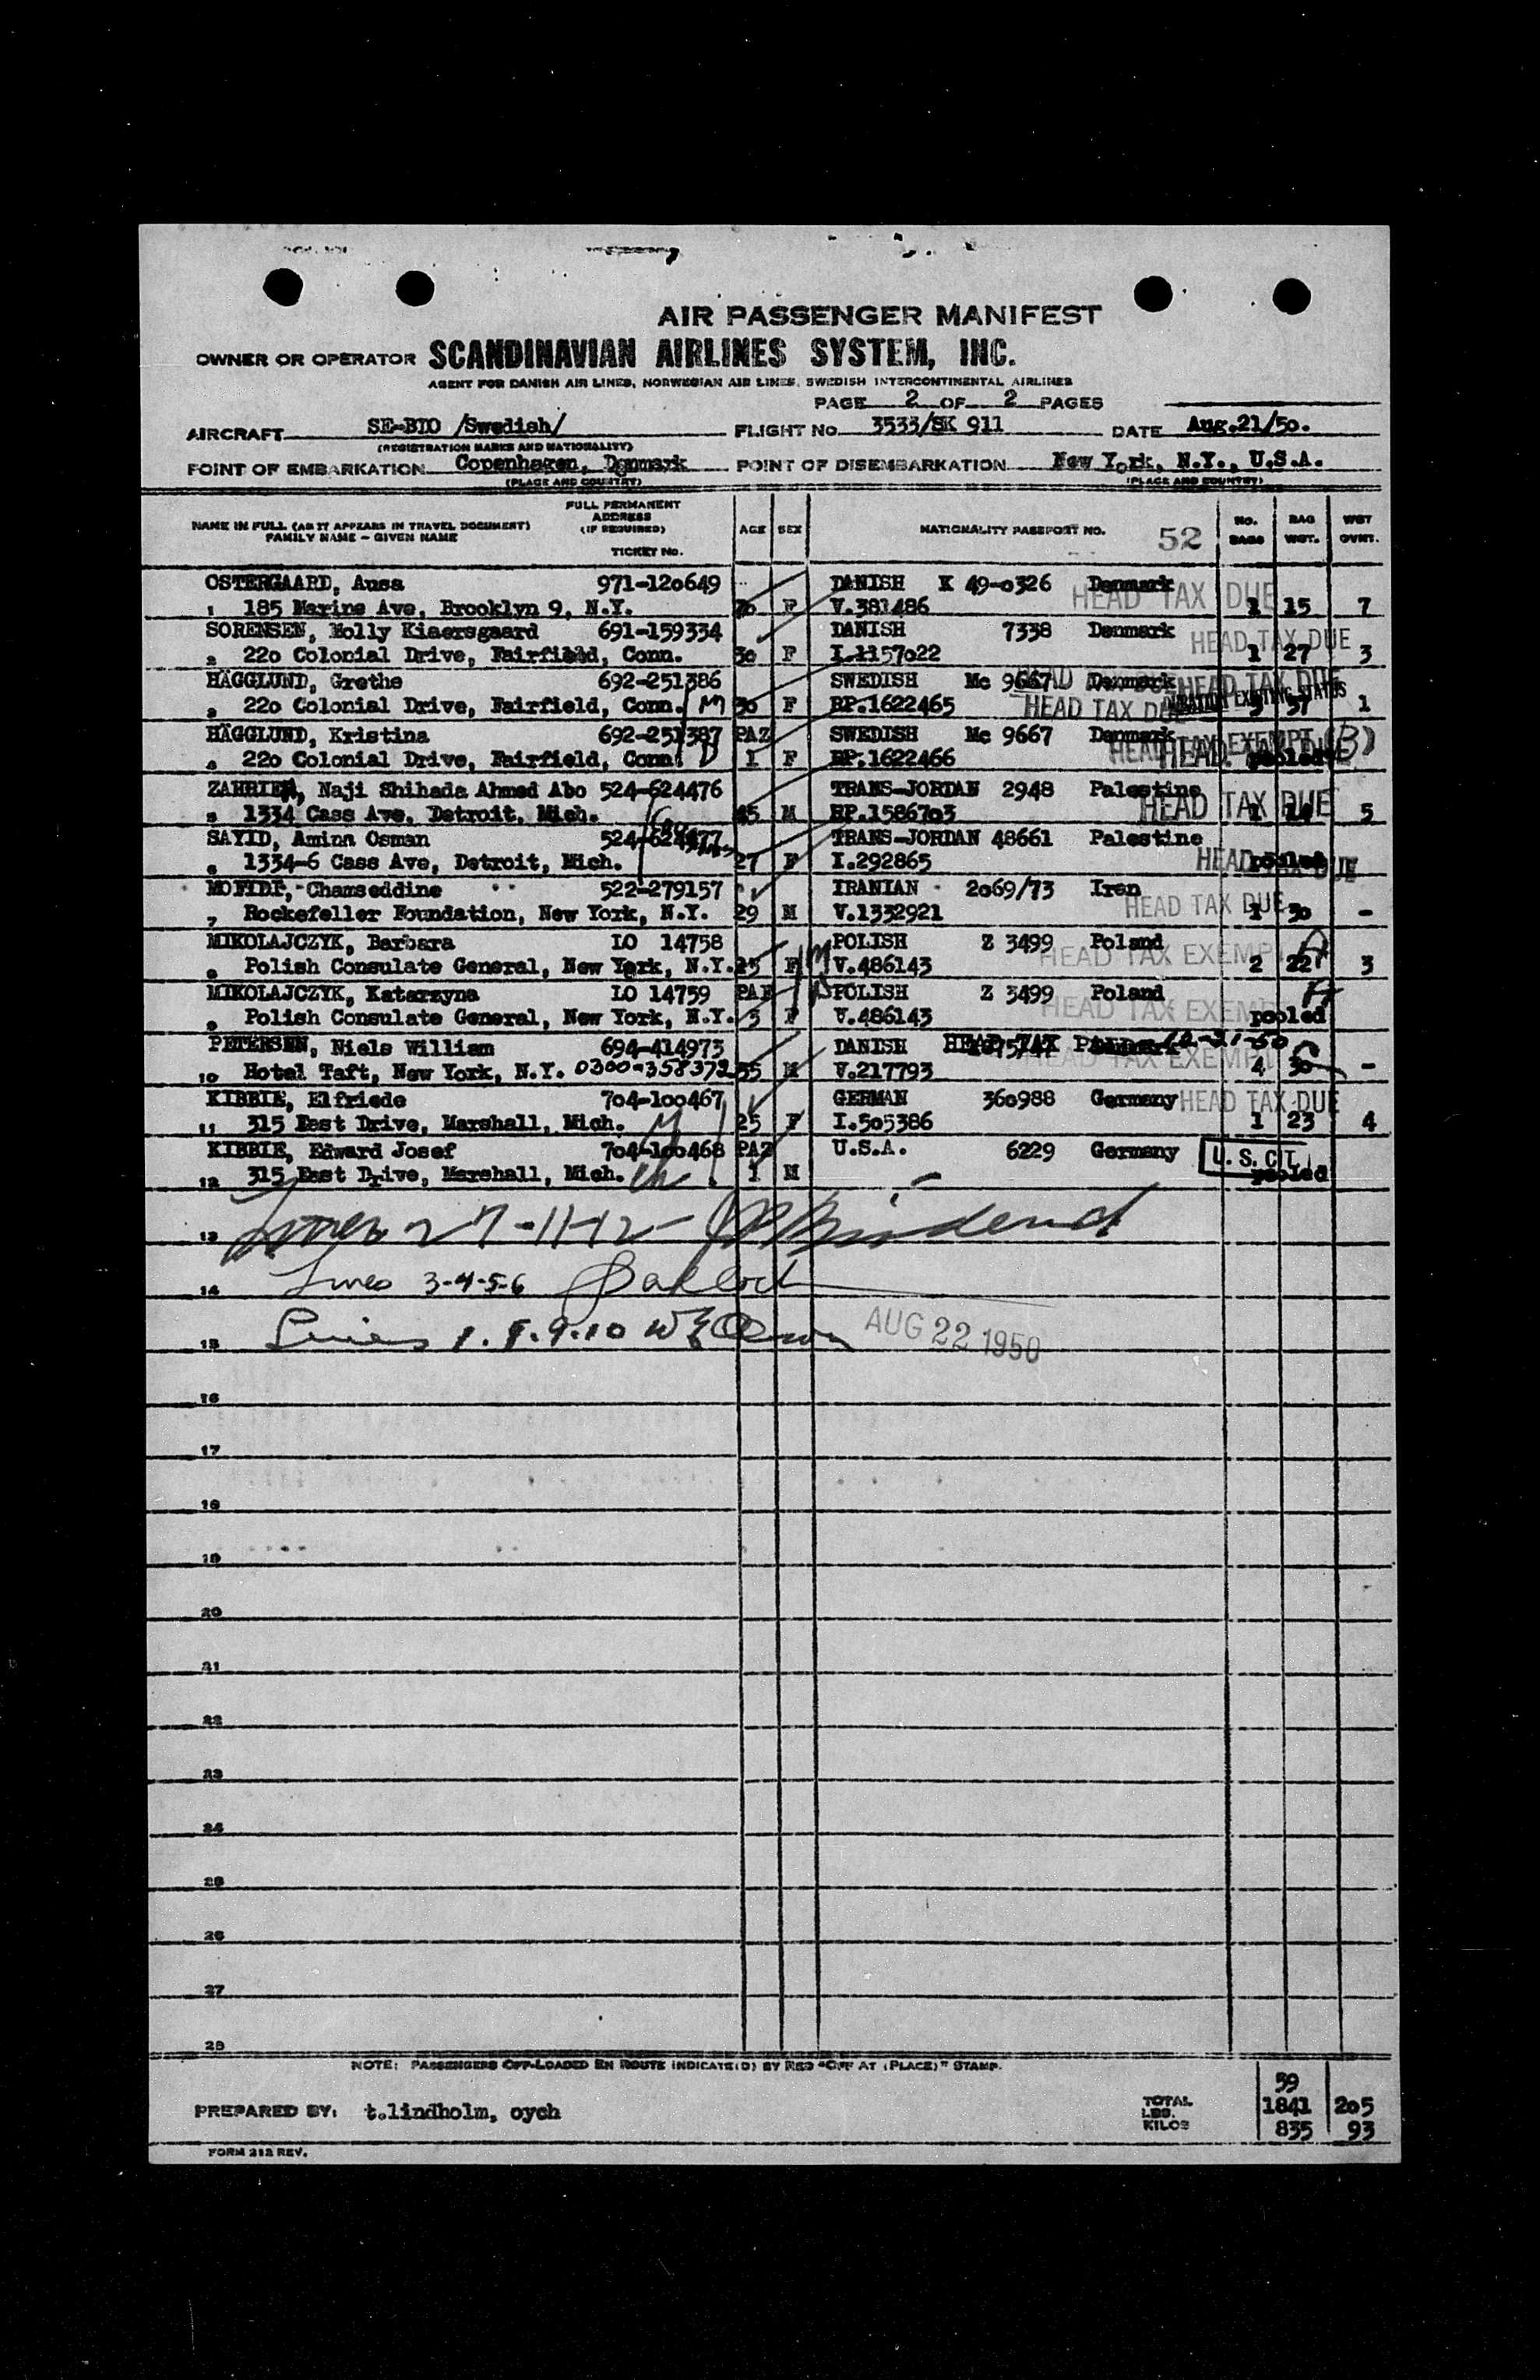 AIR PASSENGER MANIFEST
OWNER OR OPERATOR SCANDINAVIAN AIRLINES SYSTEM, INC.
AGENT FOR DANISH AIR LINES, NORWEGIAN AIR LINES, SWEDISH INTERCONTINENTAL AIRLINES
PAGE 2 OF 2 PAGES
AIRCRAFT SE-BIO /Swedish/ FLIGHT NO. 3533/SK 911 DATE Aug.21/50.
(REGISTRATION MARKS AND NATIONALITY)
POINT OF EMBARKATION Copenhagen, Denmark POINT OF DISEMBARKATION New York, N.Y., U.S.A.
(PLACE AND COUNTRY) (PLACE AND COUNTRY)
NAME IN FULL (AS IT APPEARS IN TRAVEL DOCUMENT) FAMILY NAME - GIVEN NAME FULL PERMANENT ADDRESS (IF REQUIRED) TICKET NO. AGE SEX NATIONALITY PASSPORT NO. 52 NO. BAGS BAG WGT. WGT OVWT.
OSTERGAARD, Ausa 971-120649 DANISH K 49-0326 Denmark HEAD TAX DUE
1 185 Marine Ave, Brooklyn 9, N.Y. F V.381486 1 15 7
SORENSEN, Molly Kiaersgaard 691-159334 DANISH 7338 Denmark HEAD TAX DUE
2 220 Colonial Drive, Fairfield, Conn. 30 F I.1157022 1 27 3
HÄGGLUND, Grethe 692-251386 SWEDISH Mc 9667 Denmark HEAD TAX DUE
3 220 Colonial Drive, Fairfield, Conn. M 30 F RP.1622465 HEAD TAX DUE EXISTING STATUS 3 57 1
HÄGGLUND, Kristina 692-251387 PAZ SWEDISH Mc 9667 Denmark HEAD TAX EXEMPT (B)
4 220 Colonial Drive, Fairfield, Conn. D 1 F RP.1622466 HEAD TAX DUE pooled
ZAHRIEH, Naji Shihada Ahmed Abo 524-624476 TRANS-JORDAN 2948 Palestine HEAD TAX DUE
5 1334 Cass Ave, Detroit, Mich. 45 M RP.1586703 1 5
SAYID, Amina Osman 524-624477 TRANS-JORDAN 48661 Palestine
6 1334-6 Cass Ave, Detroit, Mich. 27 F I.292865 HEAD TAX DUE pooled
MOFIDI, Chamseddine 522-279157 IRANIAN 2069/73 Iran HEAD TAX DUE
7 Rockefeller Foundation, New York, N.Y. 29 M V.1332921 1 30 -
MIKOLAJCZYK, Barbara LO 14758 POLISH Z 3499 Poland HEAD TAX EXEMPT A
8 Polish Consulate General, New York, N.Y. 25 F M V.486143 2 22 3
MIKOLAJCZYK, Katarzyna LO 14759 POLISH Z 3499 Poland HEAD TAX EXEMPT A
9 Polish Consulate General, New York, N.Y. 3 F V.486143 pooled
PETERSEN, Niels William 694-414973 DANISH HEAD TAX PAID HEAD TAX EXEMPT
10 Hotel Taft, New York, N.Y. 0300-358372 55 M V.217793 4 30 -
KIBBIE, Elfriede 704-100467 GERMAN 360988 Germany HEAD TAX DUE
11 315 East Drive, Marshall, Mich. M 25 F I.505386 1 23 4
KIBBIE, Edward Josef 704-100468 PAZ U.S.A. 6229 Germany U. S. CIT.
12 315 East Drive, Marshall, Mich. 1 M pooled
13
14 Lines 3-4-5-6
15 Lines 1.8.9.10 AUG 22 1950
16
17
18
19
20
21
22
23
24
25
26
27
28
NOTE: PASSENGERS OFF-LOADED EN ROUTE INDICATE(D) BY RED "OFF AT (PLACE)" STAMP.
PREPARED BY: t.lindholm, oych
TOTAL 59
LBS. 1841 205
KILOS 835 93
FORM 212 REV.